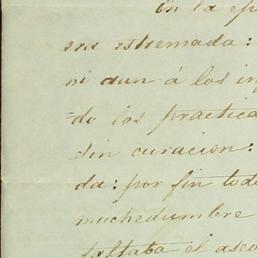 en la
era estremada:
ni aun á los
do los practica
sin curacion:
da: por fin todo
muchedumbre
faltaba el aseo